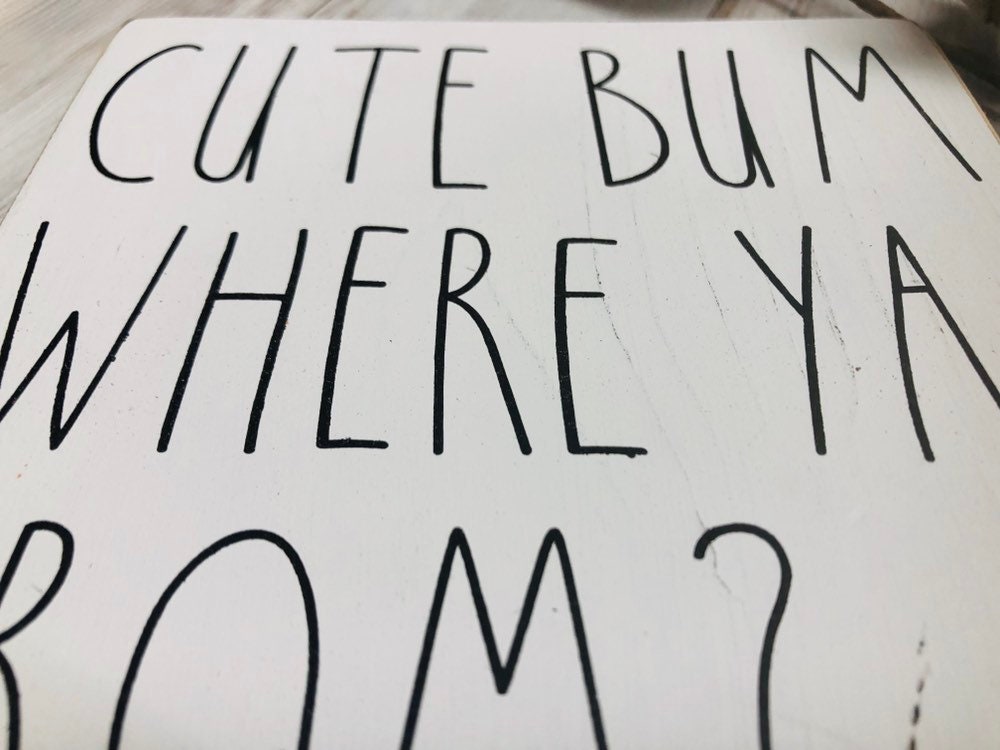 CUTE BUM
WHERE YA
ROM?